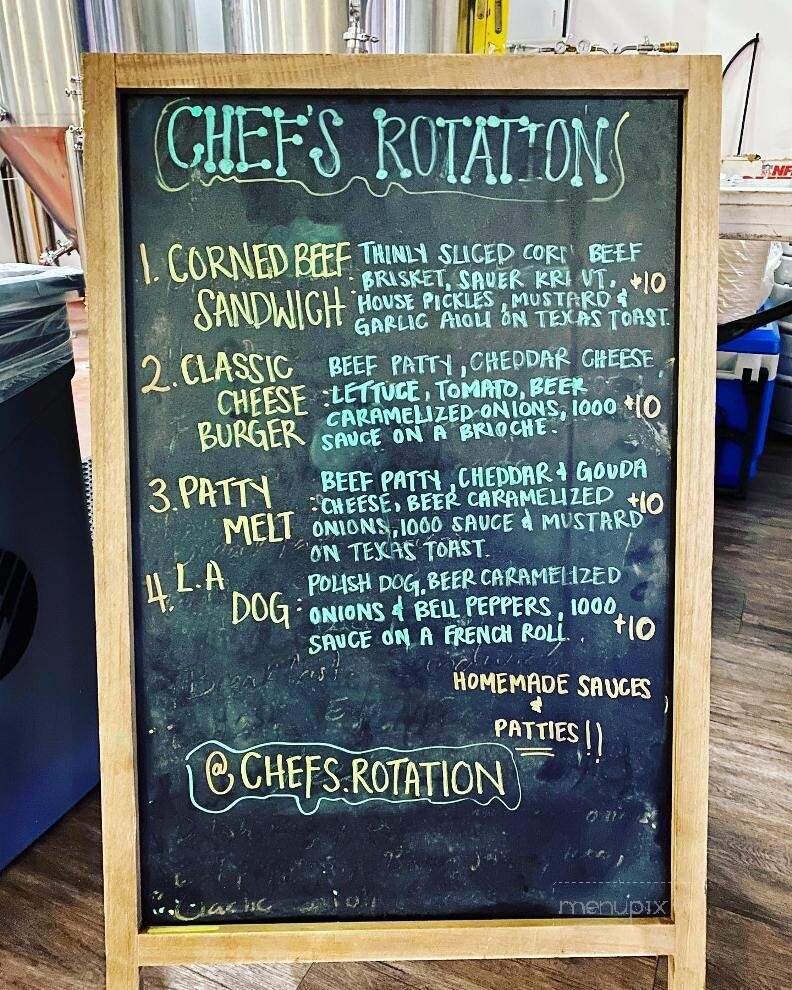 CHEF'S ROTATION
1. CORNED BEEF THINLY SLICED CORN BEEF
BRISKET, SAUER KRAUT, +10
SANDWICH: HOUSE PICKLES, MUSTARD &
GARLIC AIOLI ON TEXAS TOAST.
2. CLASSIC BEEF PATTY, CHEDDAR CHEESE,
CHEESE : LETTUCE, TOMATO, BEER
CARAMELIZED ONIONS, 1000 +10
BURGER SAUCE ON A BRIOCHE.
3. PATTY BEEF PATTY, CHEDDAR & GOUDA
: CHEESE, BEER CARAMELIZED +10
MELT ONIONS, 1000 SAUCE & MUSTARD
ON TEXAS TOAST.
4. L.A POLISH DOG, BEER CARAMELIZED
DOG: ONIONS & BELL PEPPERS, 1000
SAUCE ON A FRENCH ROLL. +10
HOMEMADE SAUCES
&
PATTIES!!
@CHEFS.ROTATION
menupix
NFL